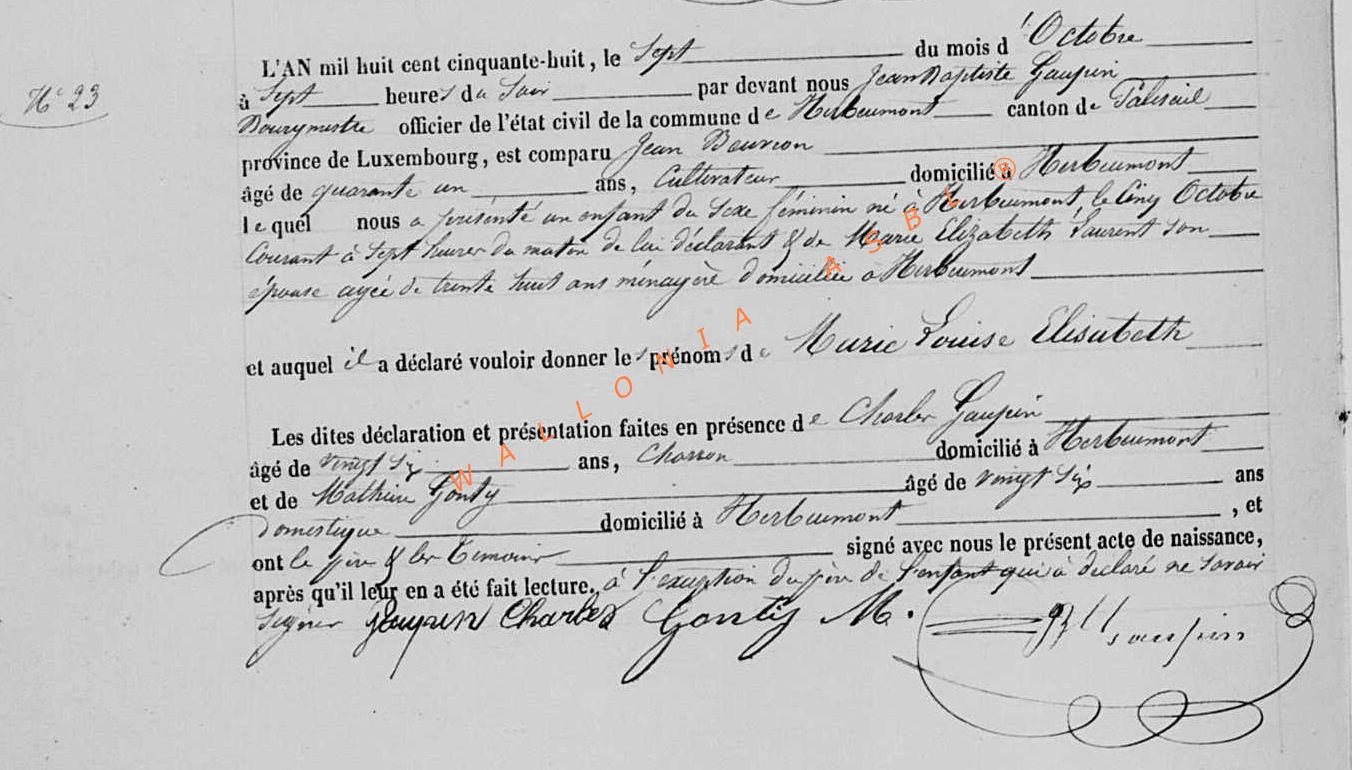 N° 23
L'AN mil huit cent cinquante-huit, le Sept du mois d'Octobre
à Sept heures du Soir par devant nous Jean Baptiste Gaupin
Bourgmestre officier de l'état civil de la commune de Herbeumont canton de Paliseul
province de Luxembourg, est comparu Jean Bouvion
âgé de quarante un ans, Cultivateur domicilié à Herbeumont
lequel nous a présenté un enfant du Sexe féminin né à Herbeumont, le Cinq Octobre
Courant à Sept heures du matin de lui déclarant & de Marie Elizabeth Laurent son
épouse agée de trente huit ans ménagère domiciliée à Herbeumont
et auquel il a déclaré vouloir donner les prénoms de Marie Louise Elisabeth
Les dites déclaration et présentation faites en présence de Charles Gaupin
âgé de vingt Six ans, Charron domicilié à Herbeumont
et de Mathieu Gonty âgé de vingt Six ans
domestique domicilié à Herbeumont, et
ont le père & les témoins signé avec nous le présent acte de naissance,
après qu'il leur en a été fait lecture, à l'exception du père de l'enfant qui à declaré ne Savoir
Signer Gaupin Charles Gontij M. Gaupin
WALLONIA ASBL ®